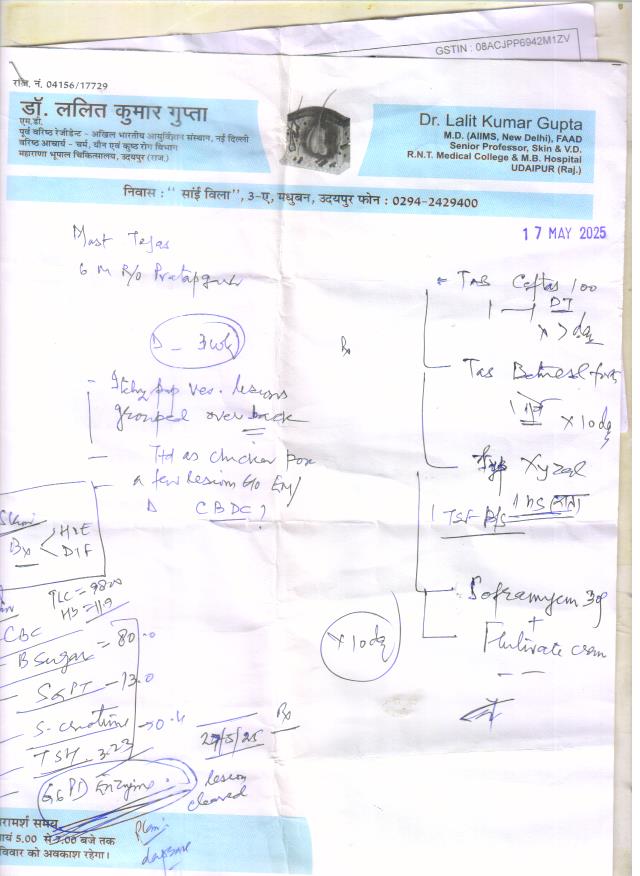 GSTIN : 08ACJPP6942M1ZV
राज. नं. 04156/17729
डॉ. ललित कुमार गुप्ता
एम.डी.
पूर्व वरिष्ठ रेजीडेन्ट - अखिल भारतीय आयुर्विज्ञान संस्थान, नई दिल्ली
वरिष्ठ आचार्य - चर्म, यौन एवं कुष्ठ रोग विभाग
महाराणा भूपाल चिकित्सालय, उदयपुर (राज.)
Dr. Lalit Kumar Gupta
M.D. (AIIMS, New Delhi), FAAD
Senior Professor, Skin & V.D.
R.N.T. Medical College & M.B. Hospital
UDAIPUR (Raj.)
निवास : " सांई विला", 3-ए, मधुबन, उदयपुर फोन : 0294-2429400
17 MAY 2025
Mast Tejas
6 M R/o Pratapgarh
D - 3 wk
Itchy pap ves. lesions
grouped over back
Ttd as chicken pox
a few lesion
CBDC ?
Bx
HPE
DIF
TLC = 9800
CBC
B Sugar = 80.0
SGPT - 13.0
S. creatinine → 0.4
TSH - 3.23
G6PD Enzyme
Rx
Tab Ceftas 100
1 — 1 DT
x 7 day
Tab Betnesol forte
x 10 day
Syp Xyzal
1 TSF 1 hs
Soframycin 30g
+
Flutivate cream
x 10 day
Rx
27/5/25
lesion
cleared
Plan:
dapsone
रामर्श समय
ायं 5.00 से 7.00 बजे तक
विवार को अवकाश रहेगा।